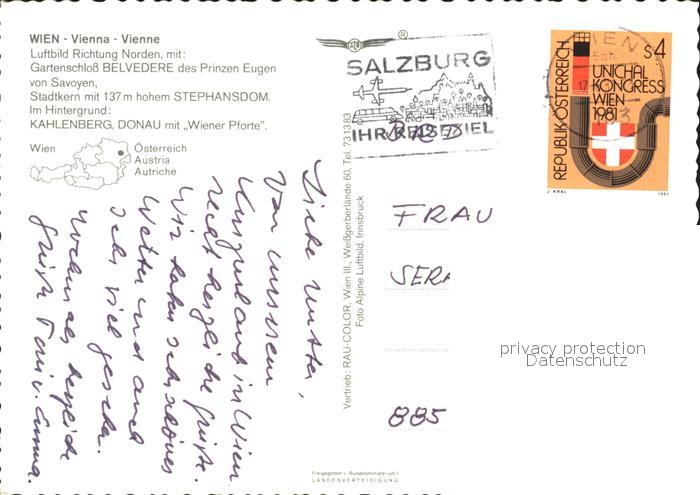 WIEN - Vienna - Vienne
Luftbild Richtung Norden, mit:
Gartenschloß BELVEDERE des Prinzen Eugen
von Savoyen,
Stadtkern mit 137 m hohem STEPHANSDOM.
Im Hintergrund:
KAHLENBERG, DONAU mit „Wiener Pforte".
Wien
Österreich
Austria
Autriche
Liebe Mutter,
Von unserem
Kurzurlaub in Wien
recht herzliche Grüße.
Wir haben schönes
Wetter und auch
sehr viel gesehen.
Nochmals herzliche
Grüße Toni u. Emma.
Vertrieb: RAU-COLOR, Wien III., Weißgerberlände 60, Tel. 7313 83
Foto Alpine Luftbild, Innsbruck
Freigegeben v. Bundesministerium f.
LANDESVERTEIDIGUNG
®
SALZBURG
IHR REISEZIEL
WIEN
REPUBLIK ÖSTERREICH
S4
UNICHAL
KONGRESS
WIEN
1981
J. KRAL
1981
FRAU
885
privacy protection
Datenschutz